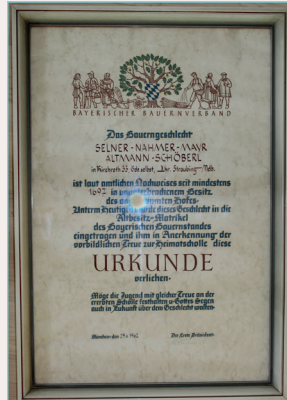 BAYERISCHER BAUERNVERBAND
Das Bauerngeschlecht
SELNER-NAHMER-MAYR
ALTMANN-SCHÖBERL
in Kirchroth 33, Ldkr. Straubing
ist laut amtlichen Nachweises seit mindestens
1692 in ununterbrochenem Besitz
des Hofes.
Unterm Heutigen wurde dieses Geschlecht in die
Altbesitz-Matrikel
des Bayerischen Bauernstandes
eingetragen und ihm in Anerkennung der
vorbildlichen Treue zur Heimatscholle diese
URKUNDE
verliehen.
Möge die Jugend mit gleicher Treue an der
ererbten Scholle festhalten u. Gottes Segen
auch in Zukunft über dem Geschlecht walten.
München, den
Der Erste Präsident: